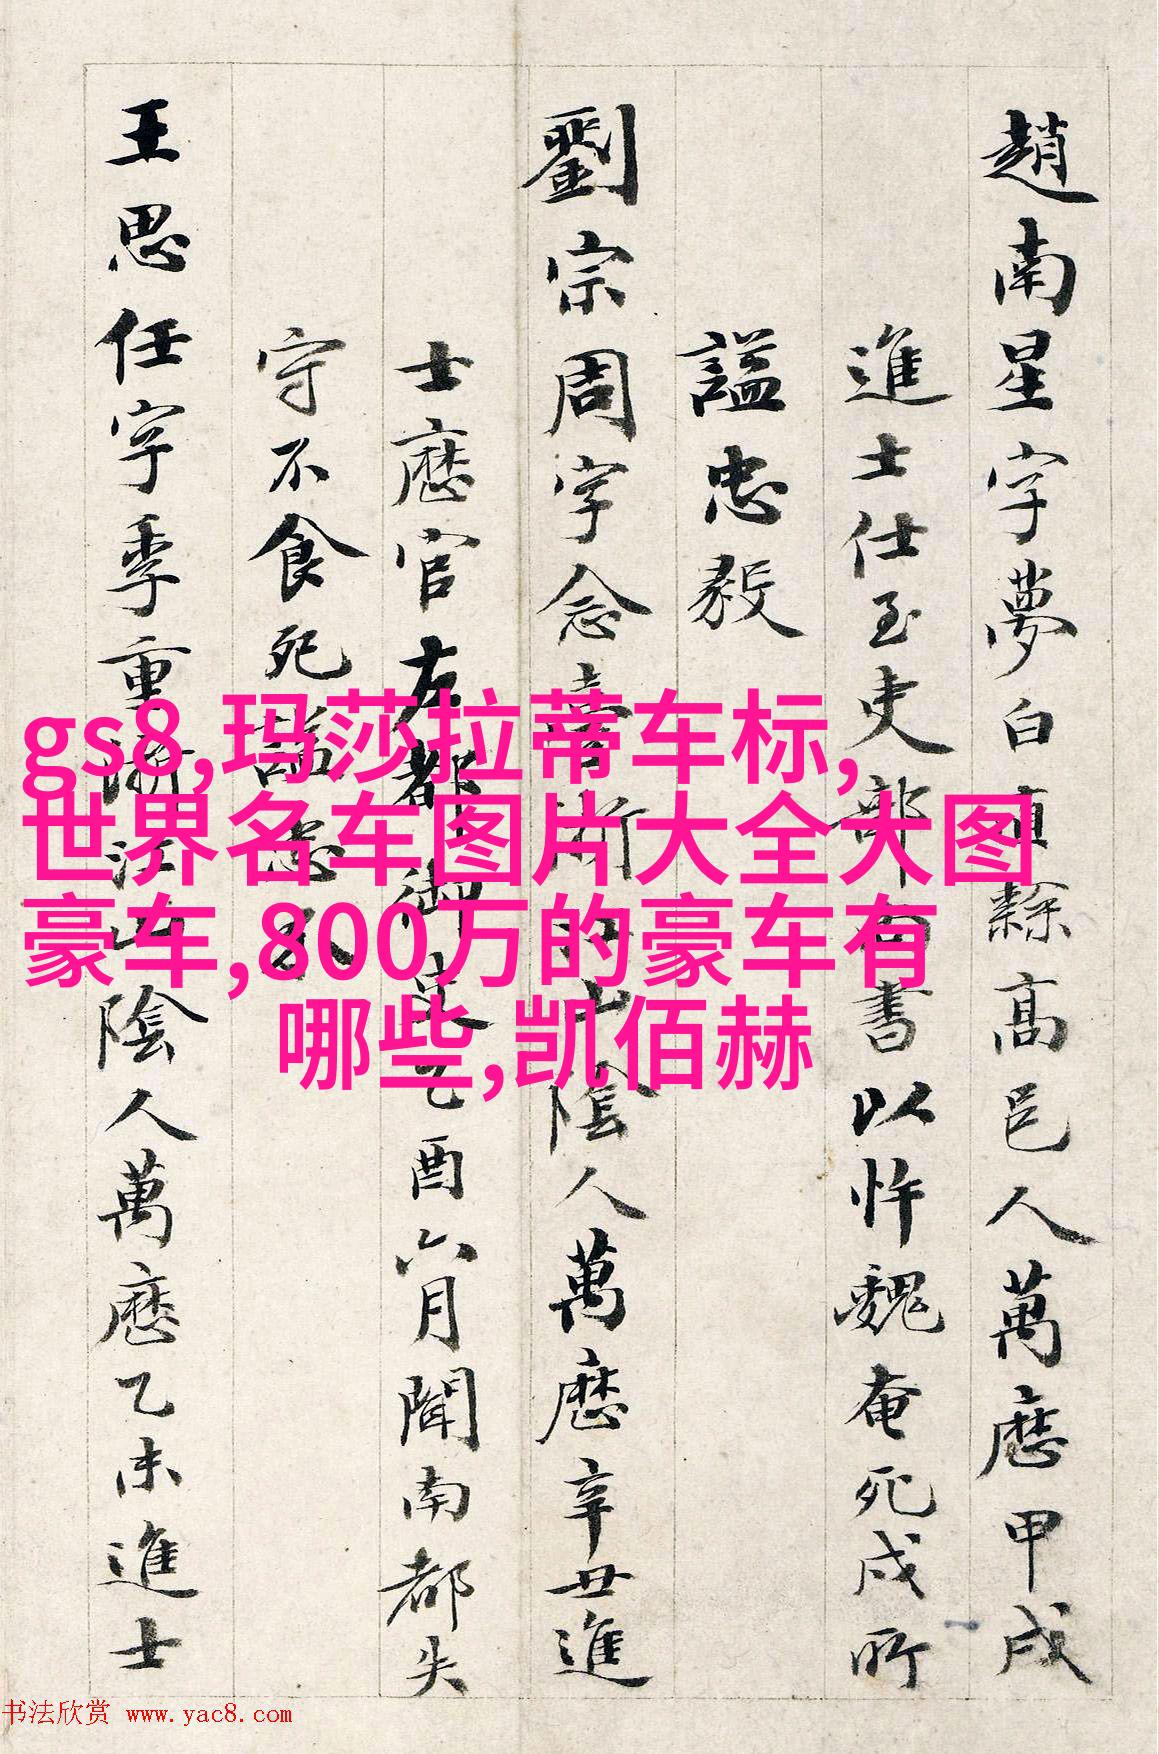 趙南星字夢白直隸高邑人萬曆甲戌
進士仕至吏部尚書以忤魏奄死戍所
謚忠毅
劉宗周字念臺浙江山陰人萬曆辛丑進
士歷官左都御史乙酉六月聞南都失
守不食死謚忠
王思任字季重浙江山陰人萬曆乙未進士
gs8,玛莎拉蒂车标,
世界名车图片大全大图
豪车,800万的豪车有
哪些,凯佰赫
书法欣赏 www.yac8.com